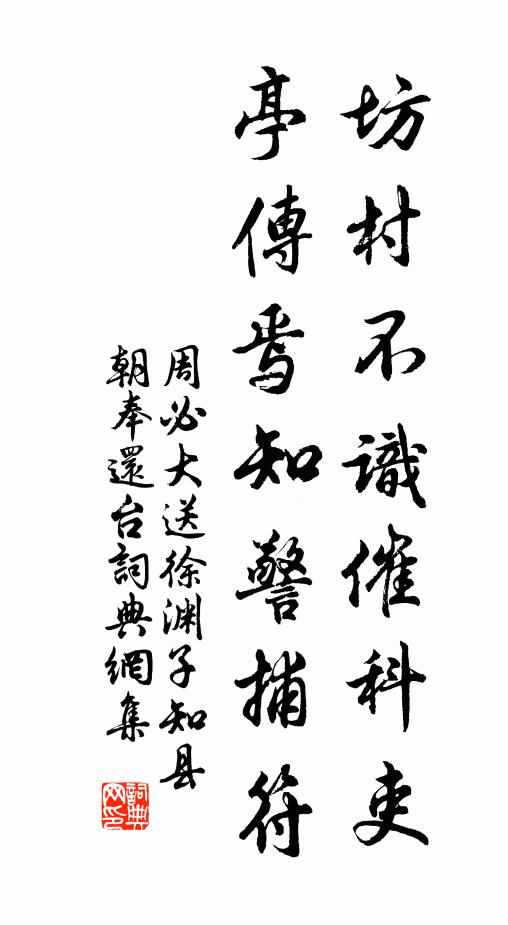 坊村不識催科吏
亭傳焉知警捕符
周必大送徐渊子知县
朝奉還台詞典網集
詞典
网印